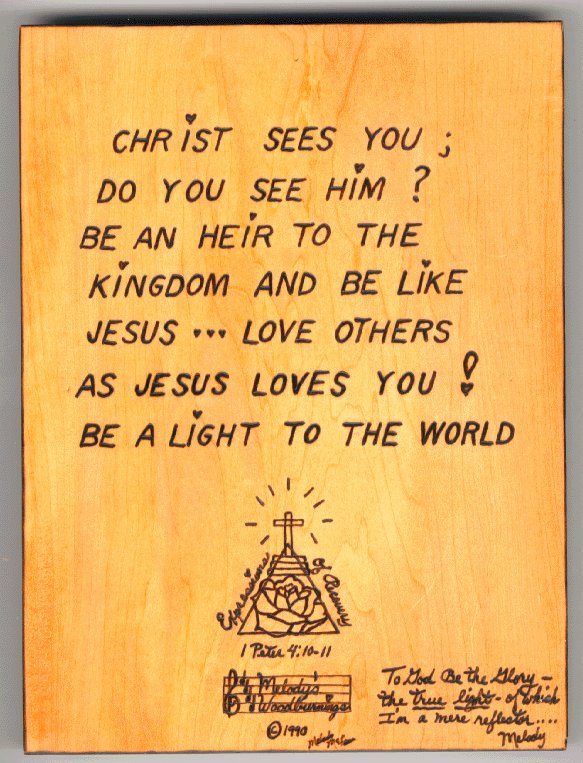 CHRIST SEES YOU ;
DO YOU SEE HIM ?
BE AN HEIR TO THE
KINGDOM AND BE LIKE
JESUS ... LOVE OTHERS
AS JESUS LOVES YOU !
BE A LIGHT TO THE WORLD
Expressions of Beauty
1 Peter 4:10-11
Melody's
Woodburnings
© 1990
To God Be the Glory -
the true light - of which
I'm a mere reflector....
Melody
Melody